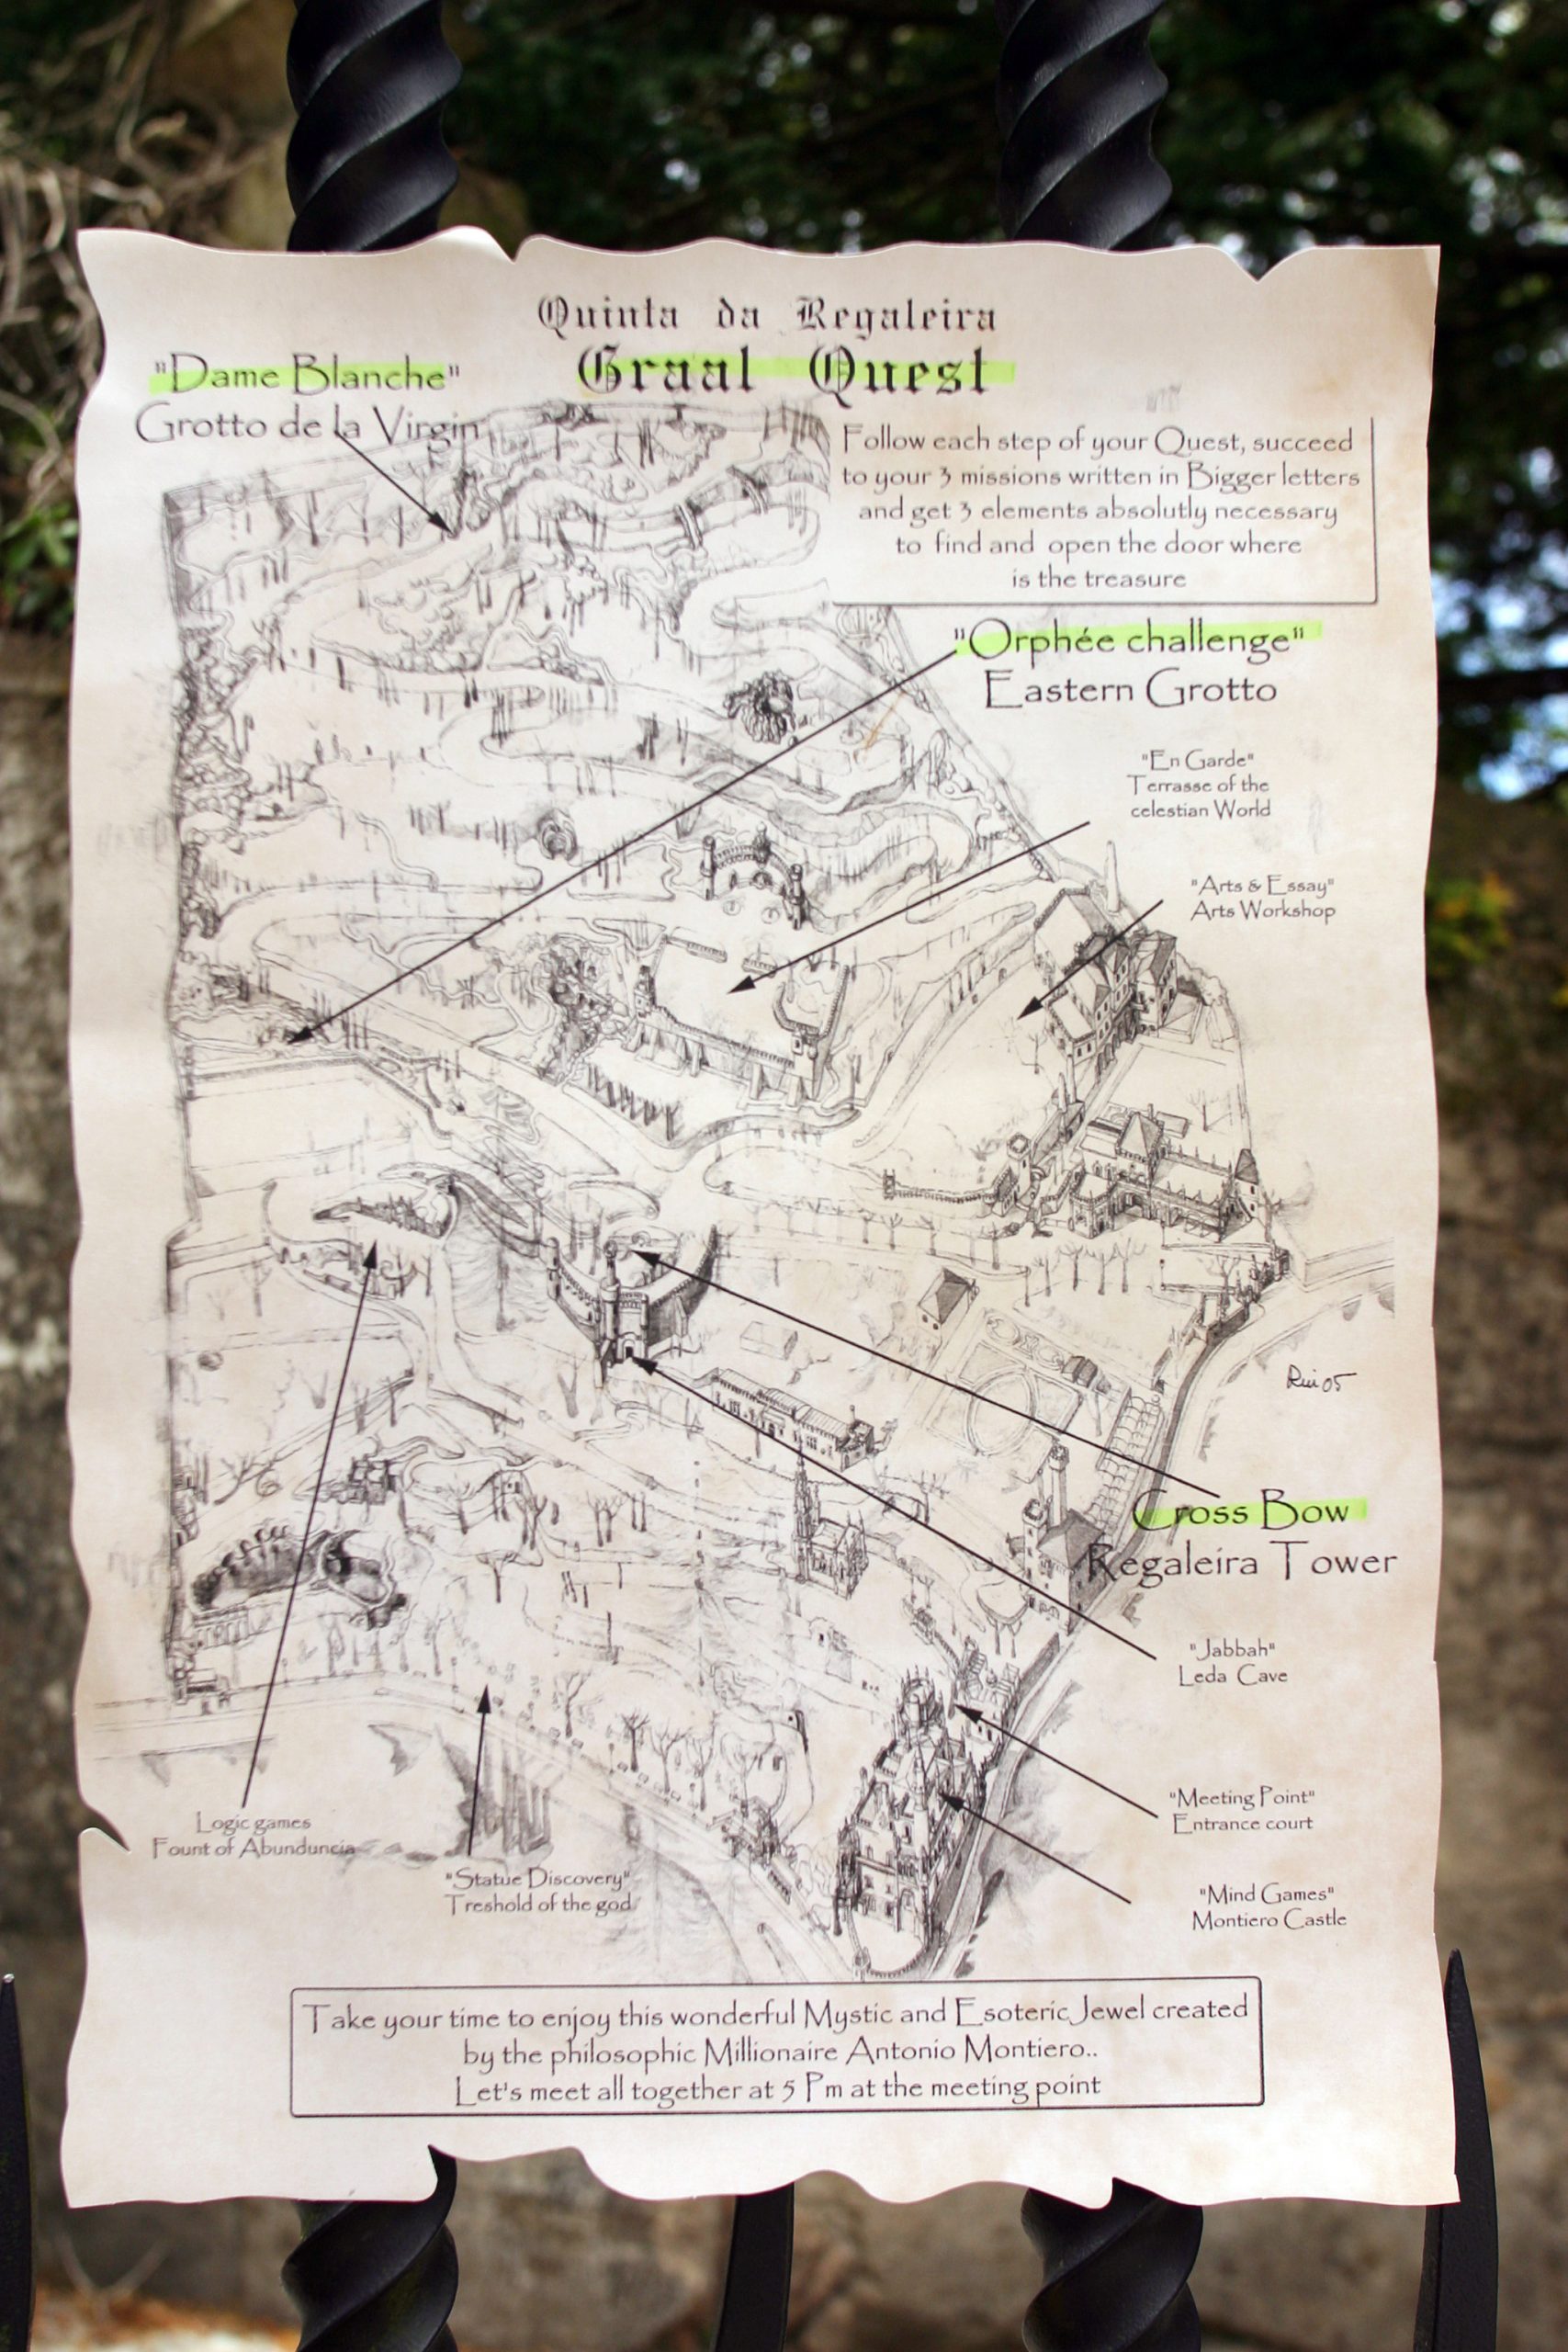 Quinta da Regaleira
Graal Quest
"Dame Blanche"
Grotto de la Virgin
Follow each step of your Quest, succeed
to your 3 missions written in Bigger letters
and get 3 elements absolutly necessary
to find and open the door where
is the treasure
"Orphée challenge"
Eastern Grotto
"En Garde"
Terrasse of the
celestian World
"Arts & Essay"
Arts Workshop
Rui 05
Cross Bow
Regaleira Tower
"Jabbah"
Leda Cave
"Meeting Point"
Entrance court
Logic games
Fount of Abunduncia
"Statue Discovery"
Treshold of the god
"Mind Games"
Montiero Castle
Take your time to enjoy this wonderful Mystic and Esoteric Jewel created
by the philosophic Millionaire Antonio Montiero..
Let's meet all together at 5 Pm at the meeting point